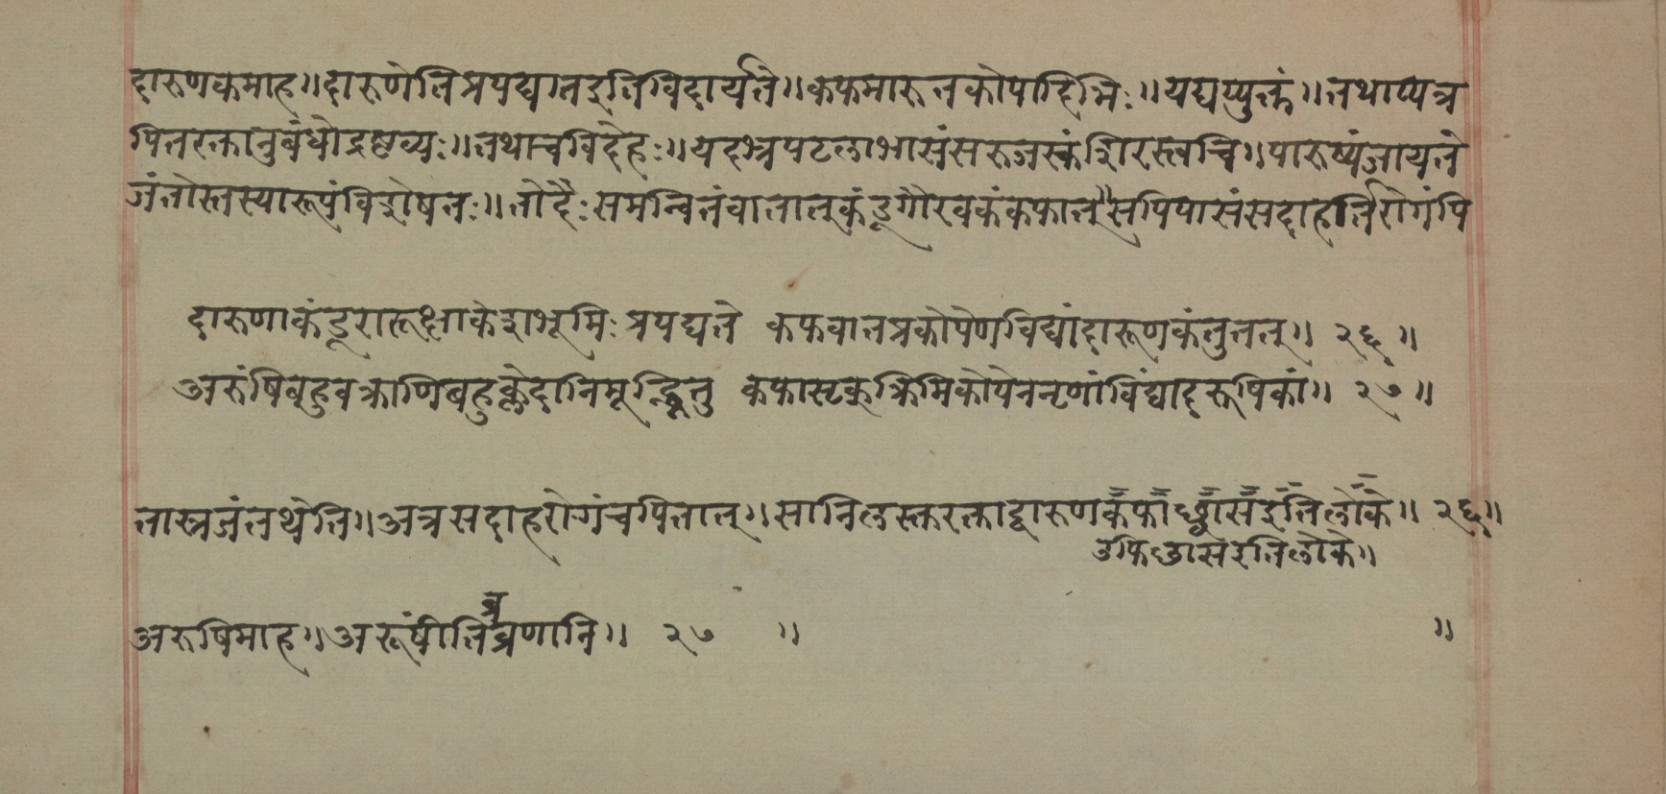 दारुणकमाह॥दारुणेतिप्रपद्यातइतिविदार्यते॥कफमारुतकोपादिभिः॥यद्यप्युक्तं॥तथाप्यत्र
पित्तरक्तानुबंधोद्रष्टव्यः॥तथाचविदेहः॥यदभ्रपटलाभासंसरुजस्कंशिरस्त्वचि॥पारुष्यंजायते
जंतोस्तस्यारूपंविशेषतः॥तोदैःसमन्वितंवातात्कंडूगौरवकंकफात्॥सपिपासंसदाहार्तिरोगंपि
दारुणाकंडूरारूक्षाकेशभूमिःप्रपद्यते कफवातप्रकोपेणविद्यांदारूणकंतुतत्॥ २६॥
अरुंषिबहुवक्राणिबहुक्लेदानिमूर्द्ध्नितु कफासृक्कृमिकोपेननृणांविंद्यादरूषिकां॥ २७॥
त्तास्रजंतथेति॥अत्रसदाहरोगंचपित्तात्॥सानिलस्क्तरक्ताद्दारुण इतिलोके॥ २६॥
इतिलोके॥
अरुषिमाह॥अरूंषीतिव्रणानि॥ २७ ॥ ॥
व्र